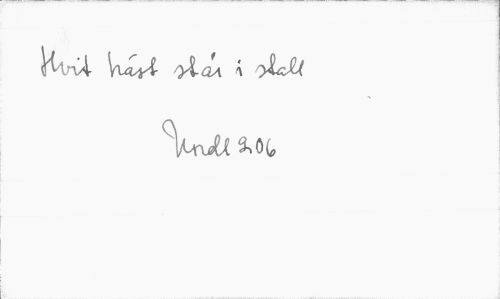 Hvit häst står i stall
Nordl 206